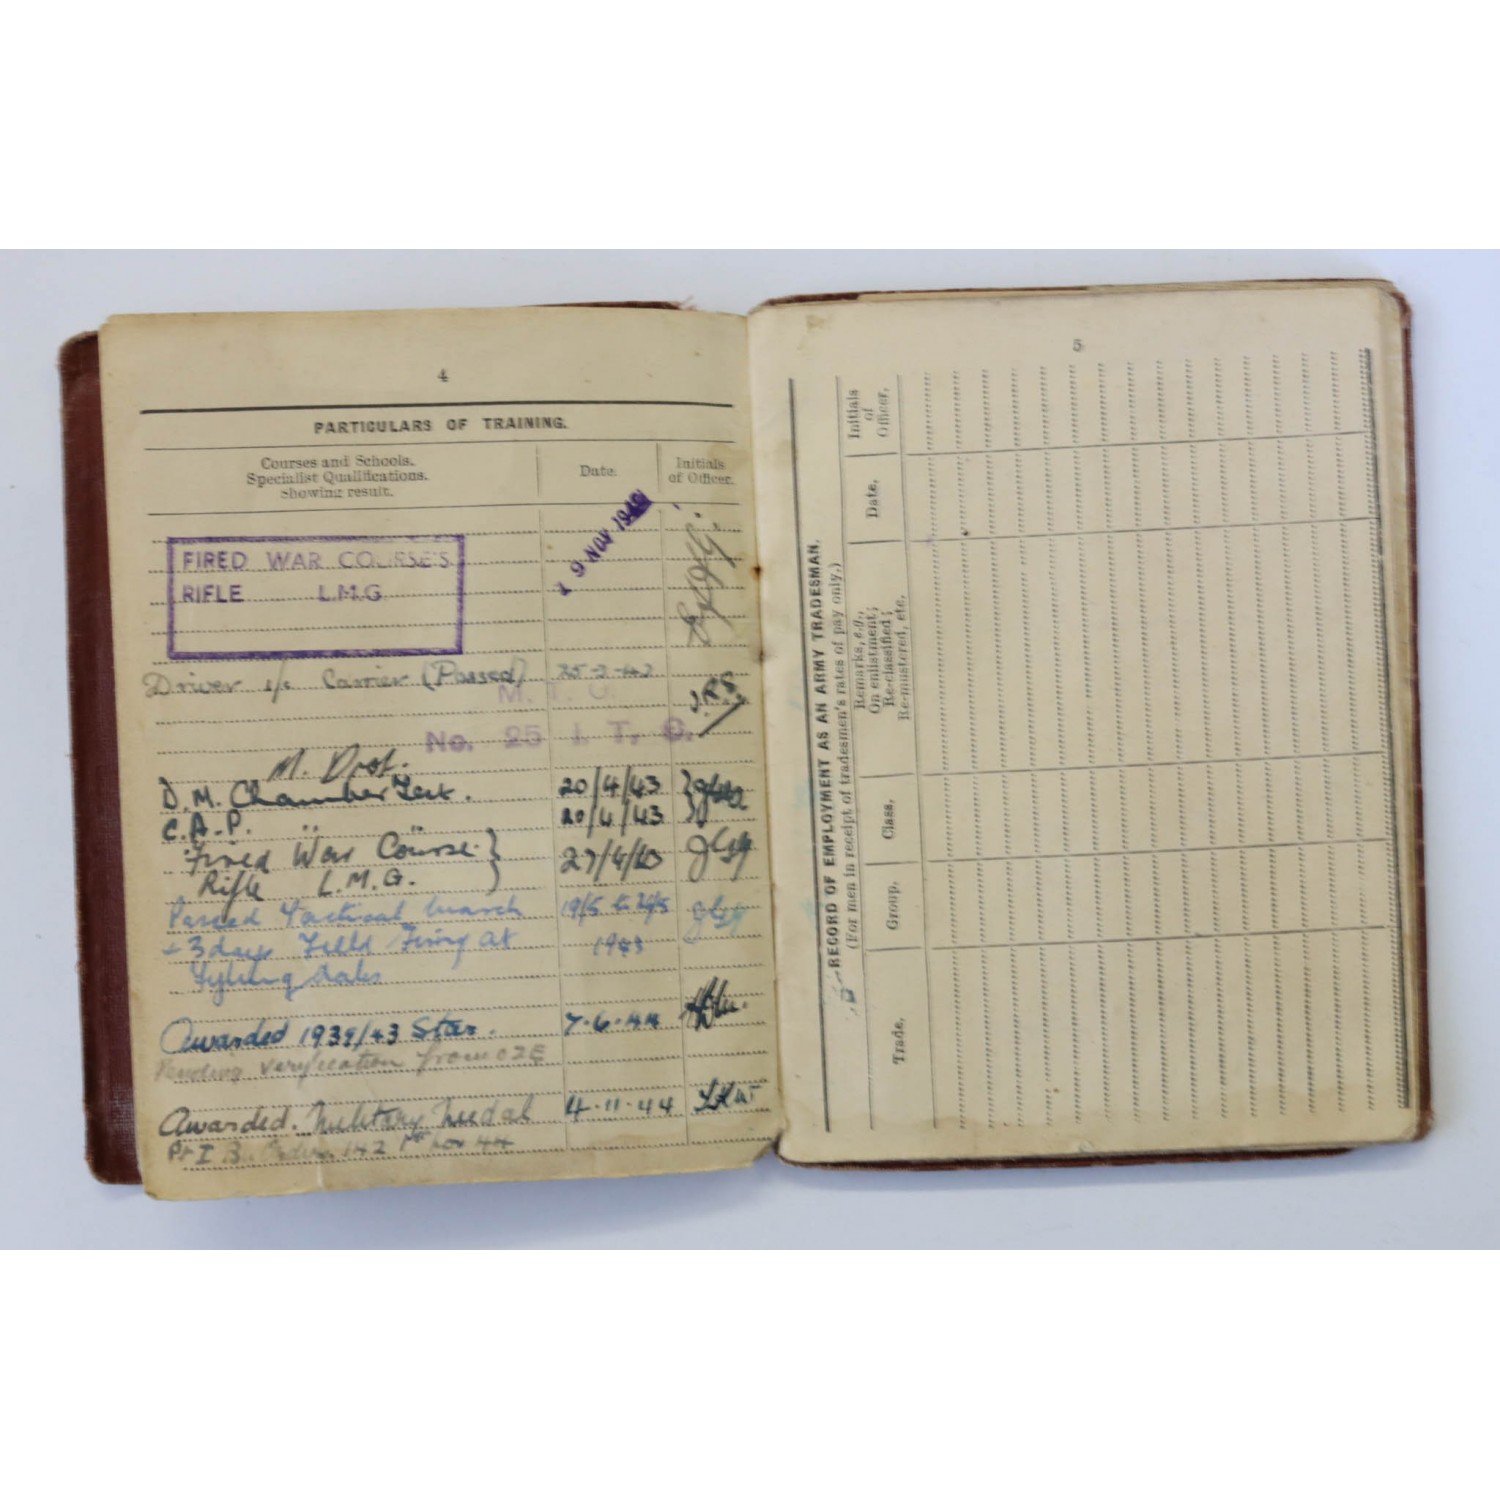 4
PARTICULARS OF TRAINING.
Courses and Schools. Date. Initials
Specialist Qualifications. of Officer.
showing result.
FIRED WAR COURSE'S
RIFLE L.M.G
9 NOV 19
Driver i/c Carrier (Passed)
M. T. C.
J.R.S.
No. 25 I. T. C.
M. Dist.
D.M. Chamber Test. 20/4/43
C.A.P. 20/4/43
Fired War Course } 27/4/43
Rifle L.M.G.
Passed Tactical march 19/5 to 24/5
+ 3 days Field Firing at 1943
Awarded 1939/43 Star. 7.6.44
Pending verification from O2E
Awarded. Military Medal 4.11.44
Pt I Orders 142 1st Nov 44
5
RECORD OF EMPLOYMENT AS AN ARMY TRADESMAN.
(For men in receipt of tradesmen's rates of pay only.)
Trade. Group. Class. Remarks, e.g., Date. Initials
On enlistment; of
Re-classified; Officer.
Re-mustered, etc.